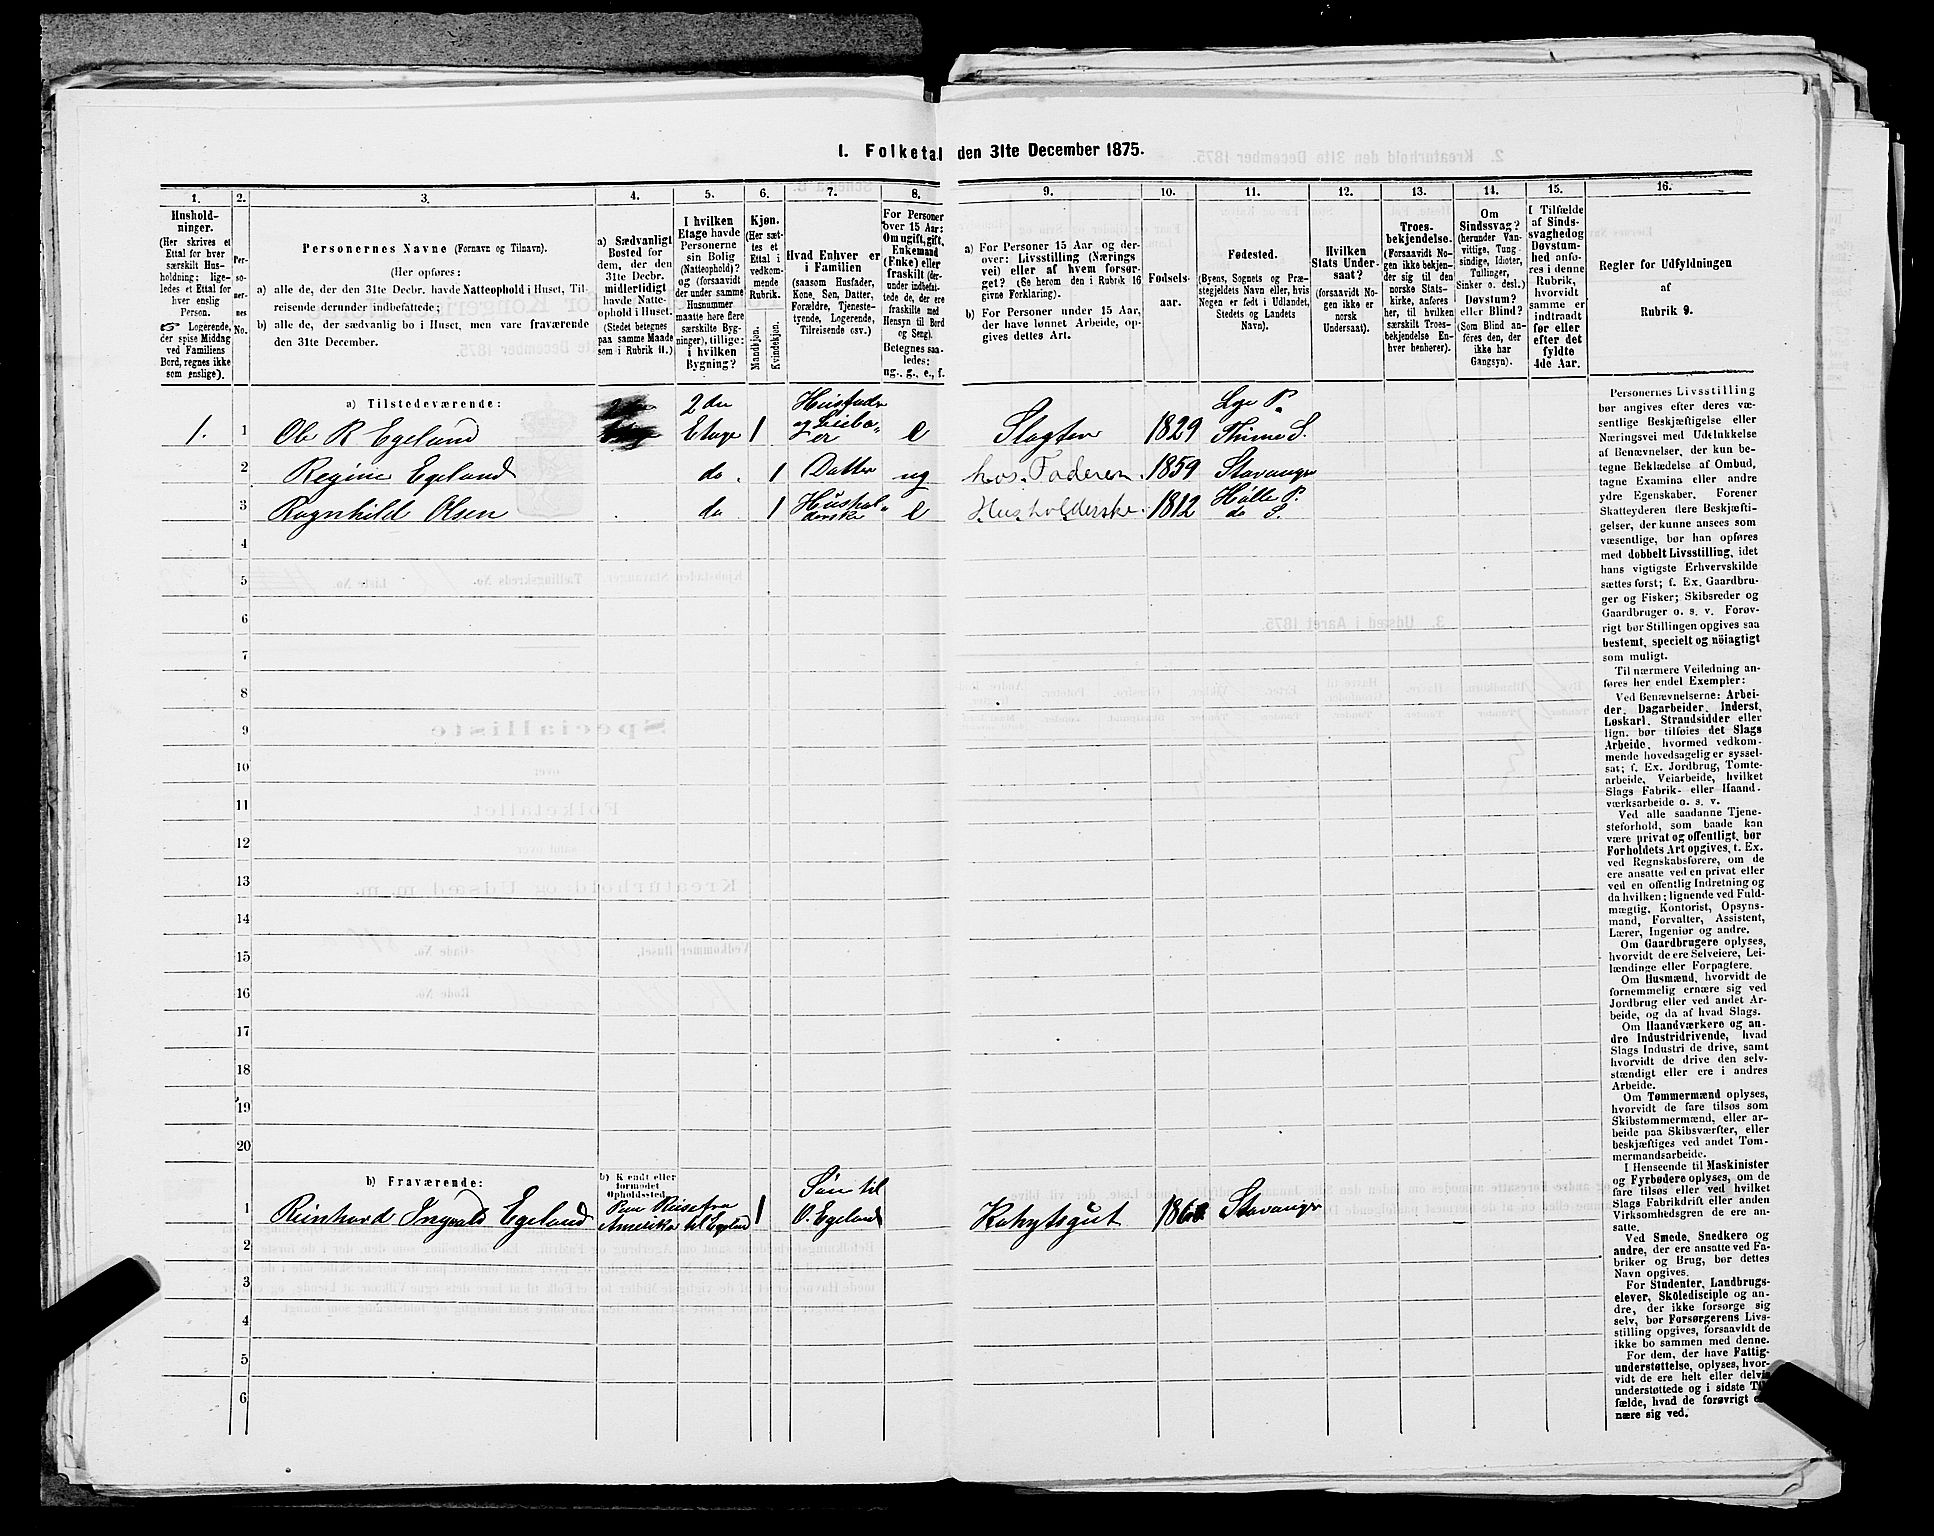 I. Folketal den 31te December 1875.
1. 2. 3. 4. 5. 6. 7. 8. 9. 10. 11. 12. 13. 14. 15. 16.
Hushold-
ninger.
(Her skrives et
Ettal for hver
særskilt Hus-
holdning; lige-
ledes et Ettal for
hver enslig
Person.
☞ Logerende,
der spise Middag
ved Familiens
Bord, regnes ikke
som enslige).
Per-
so-
ner-
nes
No.
Personernes Navne (Fornavn og Tilnavn).
(Her opføres:
a) alle de, der den 31te Decbr. havde Natteophold i Huset, Til-
reisende derunder indbefattede;
b) alle de, der sædvanlig bo i Huset, men vare fraværende
den 31te December.
a) Sædvanligt
Bosted for
dem, der den
31te Decbr.
midlertidigt
havde Natte-
ophold i Huset.
(Stedet betegnes
paa samme Maade
som i Rubrik 11.)
I hvilken
Etage havde
Personerne
sin Bolig
(Natteophold)?
og (forsaavidt
der under samme
Husnummer
maatte høre flere
særskilte Byg-
ninger), tillige:
i hvilken
Bygning?
Kjøn.
(Her sæt-
tes et
Ettal i
vedkom-
mende
Rubrik.
Mandkjøn.
Kvindekjøn.
Hvad Enhver er
i Familien
(saasom Husfader,
Kone, Søn, Datter,
Forældre, Tjeneste-
tyende, Logerende,
Tilreisende osv.)
For Personer
over 15 Aar:
Om ugift, gift,
Enkemand
(Enke) eller
fraskilt (der-
under indbefat-
tede de, der ere
fraskilte med
Hensyn til Bord
og Seng).
Betegnes saa-
ledes:
ug., g., e., f.
a) For Personer 15 Aar og der-
over: Livsstilling (Nærings
vei) eller af hvem forsør-
get? (Se herom den i Rubrik 16
givne Forklaring).
b) For Personer under 15 Aar,
der have lønnet Arbeide, op-
gives dettes Art.
Fødsels-
aar.
Fødested.
(Byens, Sognets og Præ-
stegjeldets Navn eller, hvis
Nogen er født i Udlandet,
Stedets og Landets
Navn).
Hvilken
Stats Under-
saat?
(forsaavidt No-
gen ikke er
norsk
Undersaat).
Troes-
bekjendelse.
(Forsaavidt No-
gen ikke bekjen-
der sig til den
norske Stats-
kirke, anføres
her, til hvilken
særskilt Troes-
bekjendelse En-
hver henhører).
Om
Sindssvag?
(herunder Van-
vittige, Tung-
sindige, Idioter,
Tullinger,
Sinker o. desl.)
Døvstum?
eller Blind?
(Som Blind an-
føres den, der
ikke har
Gangsyn).
I Tilfælde
af Sinds-
svaghed og
Døvstum-
hed anfø-
res i denne
Rubrik,
hvorvidt
samme er
indtraadt
før eller
efter det
fyldte
4de Aar.
Regler for Udfyldningen
af
Rubrik 9.
a) Tilstedeværende:
1. 1 Ole R Egeland 2den Etage 1 e Slagter 1829 Lye P. Thime S.
2 Regine Egeland do. 1 Datter ug hos Faderen 1859 Stavanger
3 Ragnhild Olsen do 1 e Husholderske 1812 P. do S.
4
5
6
7
8
9
10
11
12
13
14
15
16
17
18
19
20
b) Fraværende:
b) Kjendt eller
formodet
Opholdssted.
1 Reinhard Ingvald Egeland Paa Reise fra Amerika til 1 Søn til O. Egeland Stavanger
2
3
4
5
6
Personernes Livsstilling
bør angives efter deres væ-
sentlige Beskjæftigelse eller
Næringsvei med Udelukkelse
af Benævnelser, der kun be-
tegne Beklædelse af Ombud,
tagne Examina eller andre
ydre Egenskaber. Forener
Skatteyderen flere Beskjæfti-
gelser, der kunne ansees som
væsentlige, bør han opføres
med dobbelt Livsstilling, idet
hans vigtigste Erhvervskilde
sættes først; f. Ex. Gaardbru-
ger og Fisker; Skibsreder og
Gaardbruger o. s. v. Forøv-
rigt bør Stillingen opgives saa
bestemt, specielt og nöiagtigt
som muligt.
Til nærmere Veiledning an-
føres her endel Exempler:
Ved Benævnelserne: Arbei-
der, Dagarbeider, Inderst,
Løskarl, Strandsidder eller
lign. bør tilføies det Slags
Arbeide, hvormed vedkom-
mende hovedsagelig er syssel-
sat; f. Ex. Jordbrug, Tomte-
arbeide, Veiarbeide, hvilket
Slags Fabrik- eller Haand-
værksarbeide o. s. v.
Ved alle saadanne Tjene-
steforhold, som baade kan
være privat og offentligt, bør
Forholdets Art opgives, t. Ex.
ved Regnskabsførere, om de
ere ansatte ved en privat eller
ved en offentlig Indretning og
da hvilken; lignende ved Fuld-
mægtig, Kontorist, Opsyns-
mand, Forvalter, Assistent,
Lærer, Ingeniør og andre.
Om Gaardbrugere oplyses,
hvorvidt de ere Selveiere, Lei-
lændinge eller Forpagtere.
Om Husmænd, hvorvidt de
fornemmelig ernære sig ved
Jordbrug eller ved andet Ar-
beide, og da af hvad Slags.
Om Haandværkere og an-
dre Industridrivende, hvad
Slags Industri de drive, samt
hvorvidt de drive den selv-
stændigt eller ere i andres
Arbeide.
Om Tømmermænd oplyses,
hvorvidt de fare tilsøs som
Skibstømmermænd, eller ar-
beide paa Skibsværfter, eller
beskjæftiges ved andet Tøm-
mermandsarbeide.
I Henseende til Maskinister
og Fyrbødere oplyses, om de
fare tilsøs eller ved hvilket
Slags Fabrikdrift eller anden
Virksomhedsgren de ere an-
satte.
Ved Smede, Snedkere og
andre, der ere ansatte ved Fa-
briker og Brug, bør dettes
Navn opgives.
For Studenter, Landbrugs-
elever, Skoledisciple og an-
dre, der ikke forsørge sig
selv, bør Forsørgerens Livs-
stilling opgives, forsaavidt de
ikke bo sammen med denne.
For dem, der have Fattig-
understøttelse, oplyses, hvor-
vidt de ere helt eller delvis
understøttede og i sidste Til-
fælde, hvad de forøvrigt er-
nære sig ved.